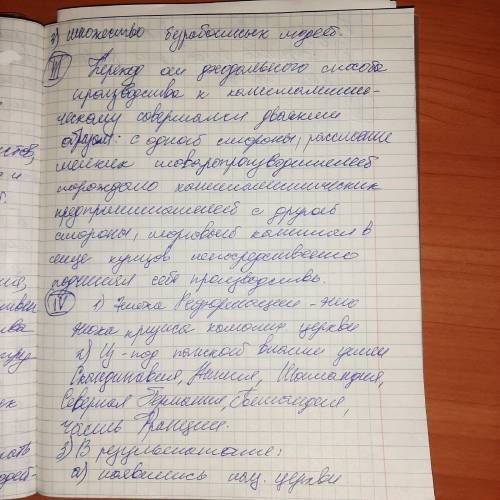 2) множество безработных людей.
III Переход от феодального способа
производства к капиталисти-
ческому совершался двояким
образом: с одной стороны, расслоение
мелких товаропроизводителей
порождало капиталистических
предпринимателей с другой
стороны, торговый капитал в
лице купцов непосредственно
подчинял себе производство.
IV 1) Эпоха Реформации - это
эпоха кризиса католич церкви
2) Из-под папской власти ушли
Скандинавия, Англия, Шотландия,
Северная Германия, Голландия,
часть Франции.
3) В результате:
а) появились нац. церкви